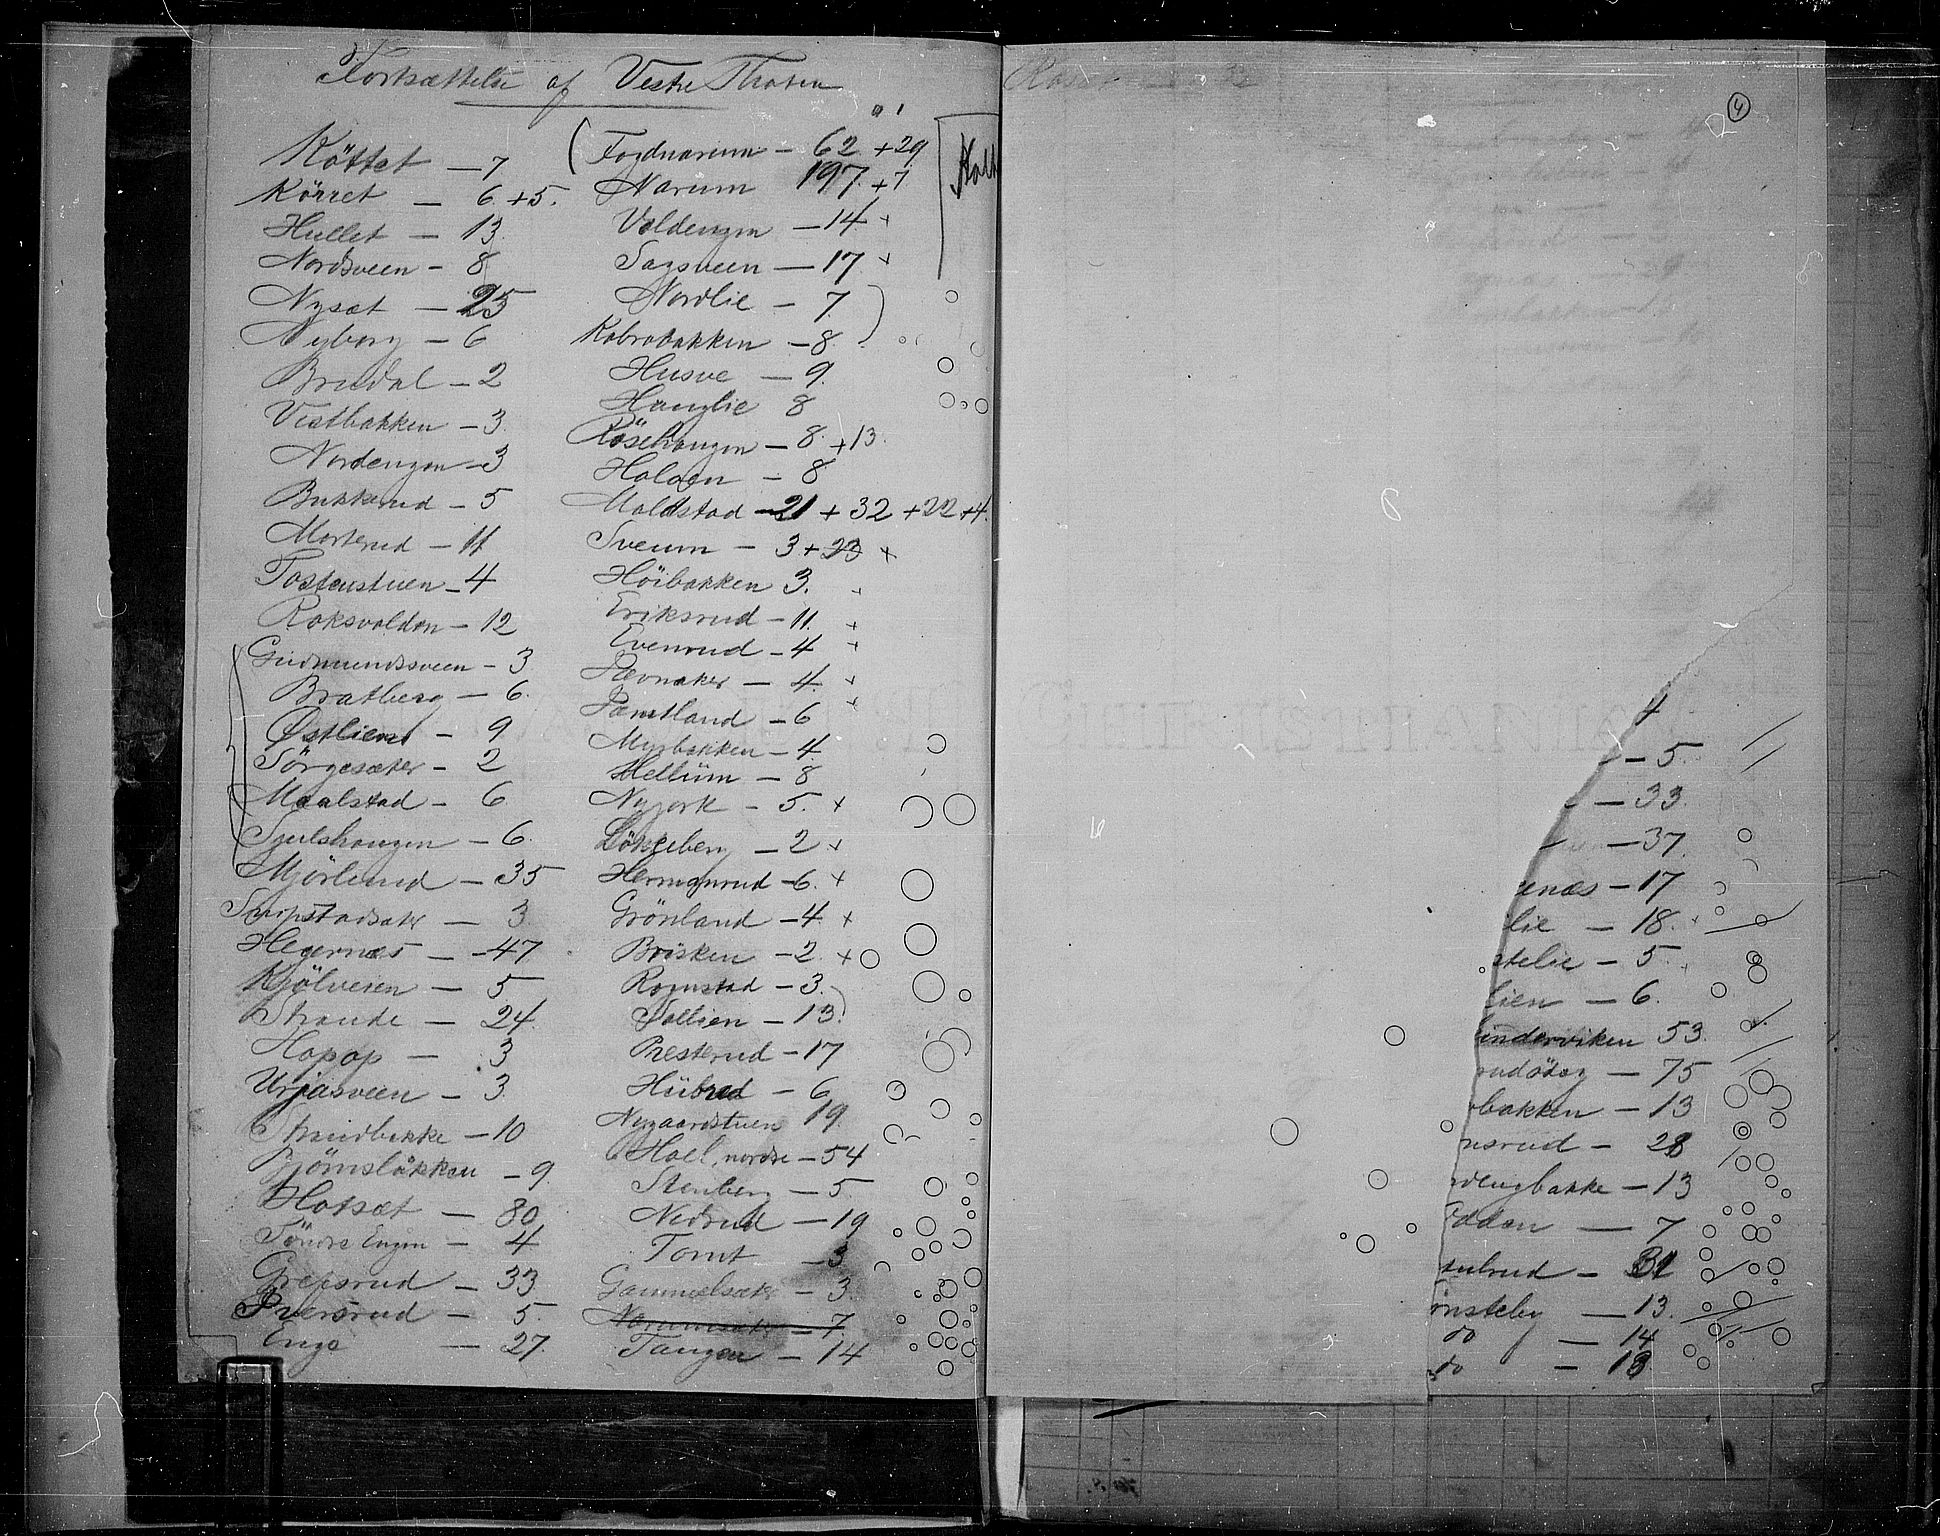 Fortsættelse af Vestre Thoten
Köttet — 7
Körret — 6 + 5.
Hullet — 13
Nordsveen — 8
Nysæt — 25
Nyborg — 6
Brudal — 2
Vestbakken — 3
Nordengen — 3
Bukkerud — 5
Morterud — 11
Tostenstuen — 4
Roksvolden — 12
Gudmundssveen — 3
Bratberg — 6.
Østlien — 9
Sörgesæter — 2
Maalstad — 6
Sjulshaugen — 6.
Mjörlund — 35
Hegernæs — 47
Kjölveien — 5
Strande — 24.
Hopop — 3
Urjasveen — 3
Strandbakke — 10
Bjömslökken — 9
Hotsæt — 80
Söndre Engen — 4
Grefsrud — 33
Sversrud — 5.
Enge — 27
Fogdnarum — 62 + 29
Narum 197. + 7
Voldengen — 14 +
Sagsveen — 17 +
Nordlie — 7.
Kabrabakken — 8
Husve — 9.
Hauglie 8
Röisehaugen — 8. + 13
Holoen — 8
Maldstad — 21 + 32 + 22 + 4.
Sveum — 3 + 23 +
Höibakken 3.
Eriksrud — 11. +
Evenrud — 4 +
Hævnaker — 4. +
Jæmtland — 6 +
Myrbakken — 4.
Mellüm — 8
Nyjork — 5. +
Lökjeberg — 2 +
Hermanrud — 6. +
Grönland — 4. +
Brisken — 2. +
Rognstad — 3.
Sollien — 13.
Presterud — 17
Hübred — 6
Nygaardstuen 19.
Hoel, nordre — 54
Stenberg — 5
Nedrud — 19
Tomt — 3
Gammelsæter — 3.
Narumsæter — 7.
Taugen — 14
4
4
— 5.
— 33.
— 37.
enæs — 17
lie — 18. +
stelie — 5.
lien — 6.
inderviken 53.
rudödeg — 75
bakken — 13
nsrud — 28
dengbakke — 13
ödden — 7
tulrud — 31
önsteby — 13.
do — 14
do — 13